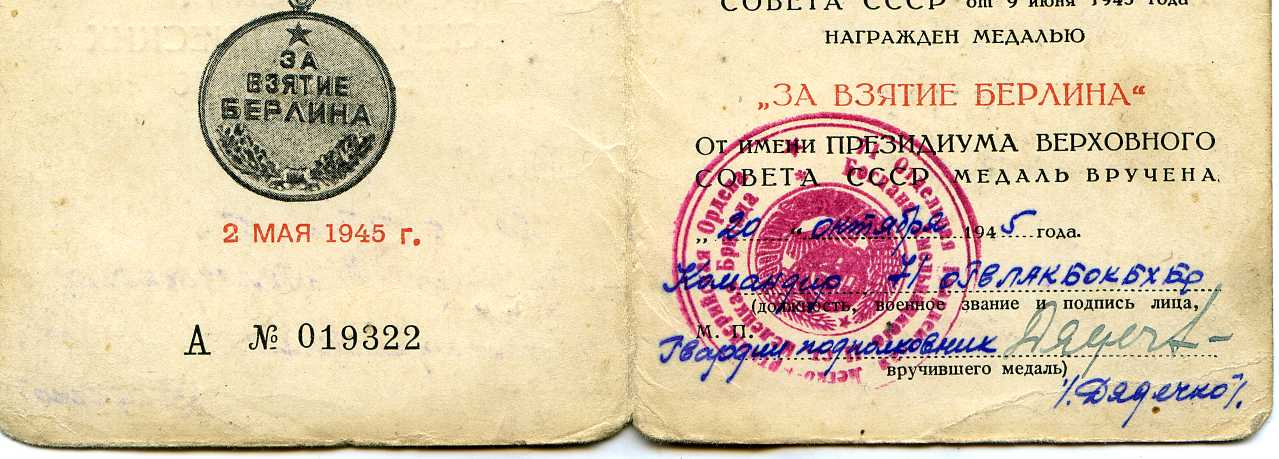 ЗА
ВЗЯТИЕ
БЕРЛИНА
2 МАЯ 1945 г.
А № 019322
СОВЕТА СССР от 9 июня 1945 года
НАГРАЖДЕН МЕДАЛЬЮ
„ЗА ВЗЯТИЕ БЕРЛИНА“
От имени ПРЕЗИДИУМА ВЕРХОВНОГО
СОВЕТА СССР МЕДАЛЬ ВРУЧЕНА
„20“ октября 1945 года.
Командир 71 оГвЛАКБОКБХБр
(должность, военное звание и подпись лица,
М. П.
Гвардии подполковник Дядеч
вручившего медаль)
/Дядечко/.